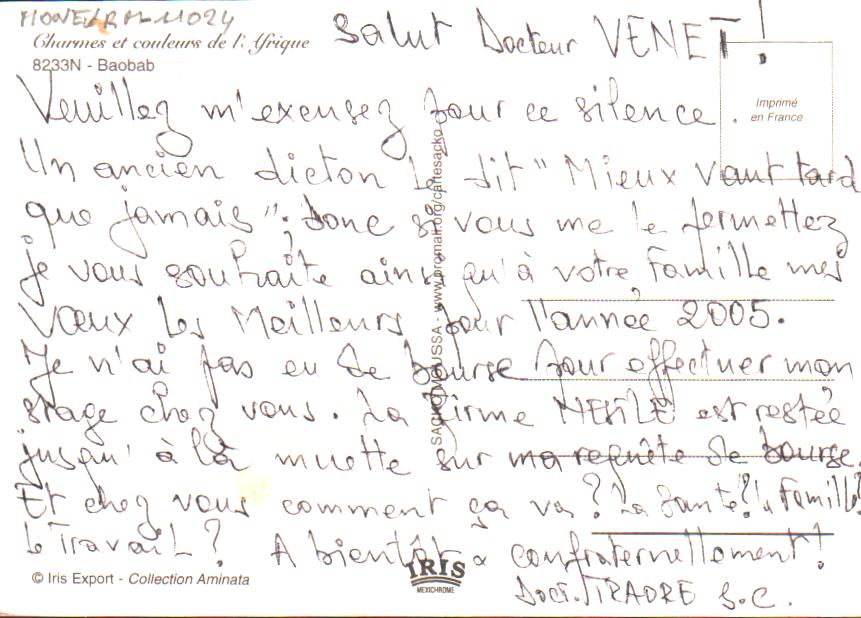 Charmes et couleurs de l'Afrique
8233N - Baobab
Salut Docteur VENET !
Imprimé
en France
Veuillez m'excusez pour ce silence.
Un ancien dicton le dit "Mieux vaut tard
que jamais"; donc si vous me le permettez
je vous souhaite ainsi qu'à votre Famille mes
Vœux les Meilleurs pour l'année 2005.
Je n'ai pas eu de bourse pour effectuer mon
stage chez vous. La Firme est restée
jusqu'à là muette sur ma requête de bourse.
Et chez vous comment ça va? La Santé? la Famille?
le Travail? A bientôt & confraternellement!
Doct. TRAORE S.C.
© Iris Export - Collection Aminata
IRIS
MEXICHROME